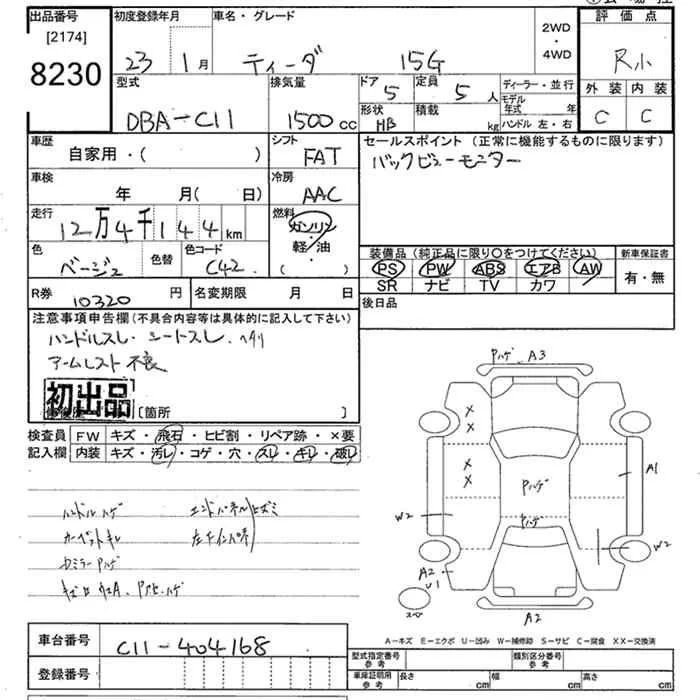 出品番号
[2174]
8230
初度登録年月
23 1月
車名・グレード
ティーダ 15G
2WD
・
4WD
評価点
R小
外装 内装
C C
型式
DBA-C11
排気量
1500cc
ドア
5
定員
5人
形状
HB
積載
kg
ディーラー・並行
モデル年式 年
ハンドル 左・右
車歴
自家用・( )
シフト
FAT
セールスポイント (正常に機能するものに限ります)
バックビューモニター
車検
年 月( 日)
冷房
AAC
走行
12万4千144km
燃料
ガソリン
軽・油
( )
色
ベージュ
色替
色コード
C42
装備品(純正品に限り○をつけてください)
PS PW ABS エアB AW
SR ナビ TV カワ
新車保証書
有・無
R券
10320円
名変期限 月 日
後日品
注意事項申告欄(不具合内容等は具体的に記入して下さい)
ハンドルスレ・シートスレ、ヘタリ
アームレスト不良
初出品
[箇所 ]
検査員 FW キズ・飛石・ヒビ割・リペア跡・×要
記入欄 内装 キズ・汚レ・コゲ・穴・スレ・キレ・破レ
ハンドルハゲ
カーペットキレ
Pハゲ A3
A1
Pハゲ
Pハゲ
W2
W2
A2
U1
スペ
A2
A-キズ E-エクボ U-凹み W-補修跡 S-サビ C-腐食 XX-交換済
車台番号
C11-404168
登録番号
型式指定番号
参考
類別区分番号
参考
車庫証明用
参考
長さ cm
幅 cm
高さ cm